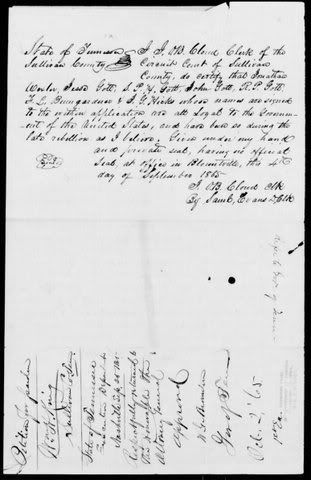 State of Tennessee I J. W. B. Cloud Clerk of the
Sullivan County Circuit Court of Sullivan
County, do certify that Jonathan
Jesse Gott, S. P. Y. Gott, John Gott, R. P. Gott,
F. L. Bumgardner & J. G. Hicks whose names are signed
to the within application are all Loyal to the Govern-
ment of the United States, and have been so during the
late rebellion as I believe. Given under my hand
and private seal, having no official
Seal at office in Blountville, this 4th
day of September 1865
Cloud Clk
By Saml. Evans D Clk
Petition for pardon
Sullivan Co Tenn
State of Tennessee
Executive Department
Nashville Sept 1865
Respectfully returned to
the honorable the
Attorney General
approved
Gov of Ten
Oct. 2, '65